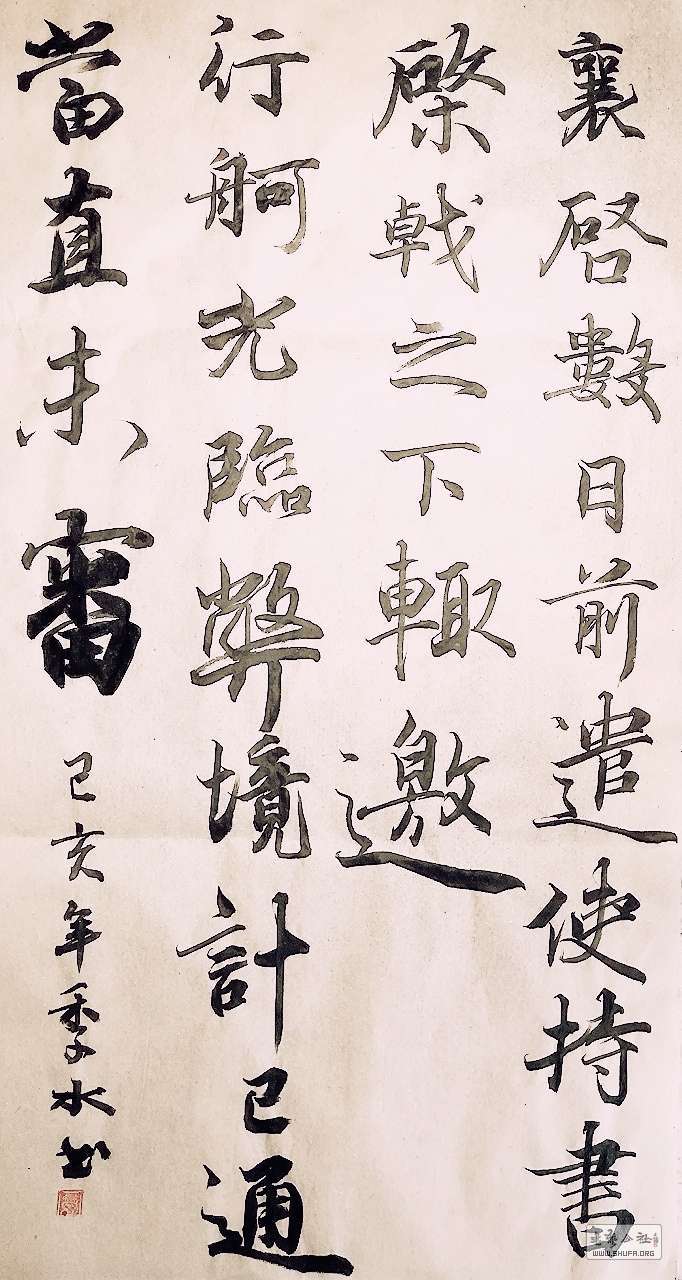 襄啓數日前遣使持書
棨戟之下輙邀
行舸光臨弊境計已通
當直未審
己亥年季水书
WWW.SHUFA.ORG